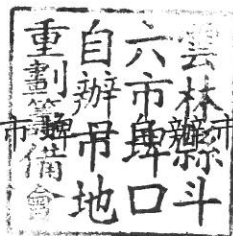 雲林縣斗
六市埤口
自辦市地
重劃籌備會